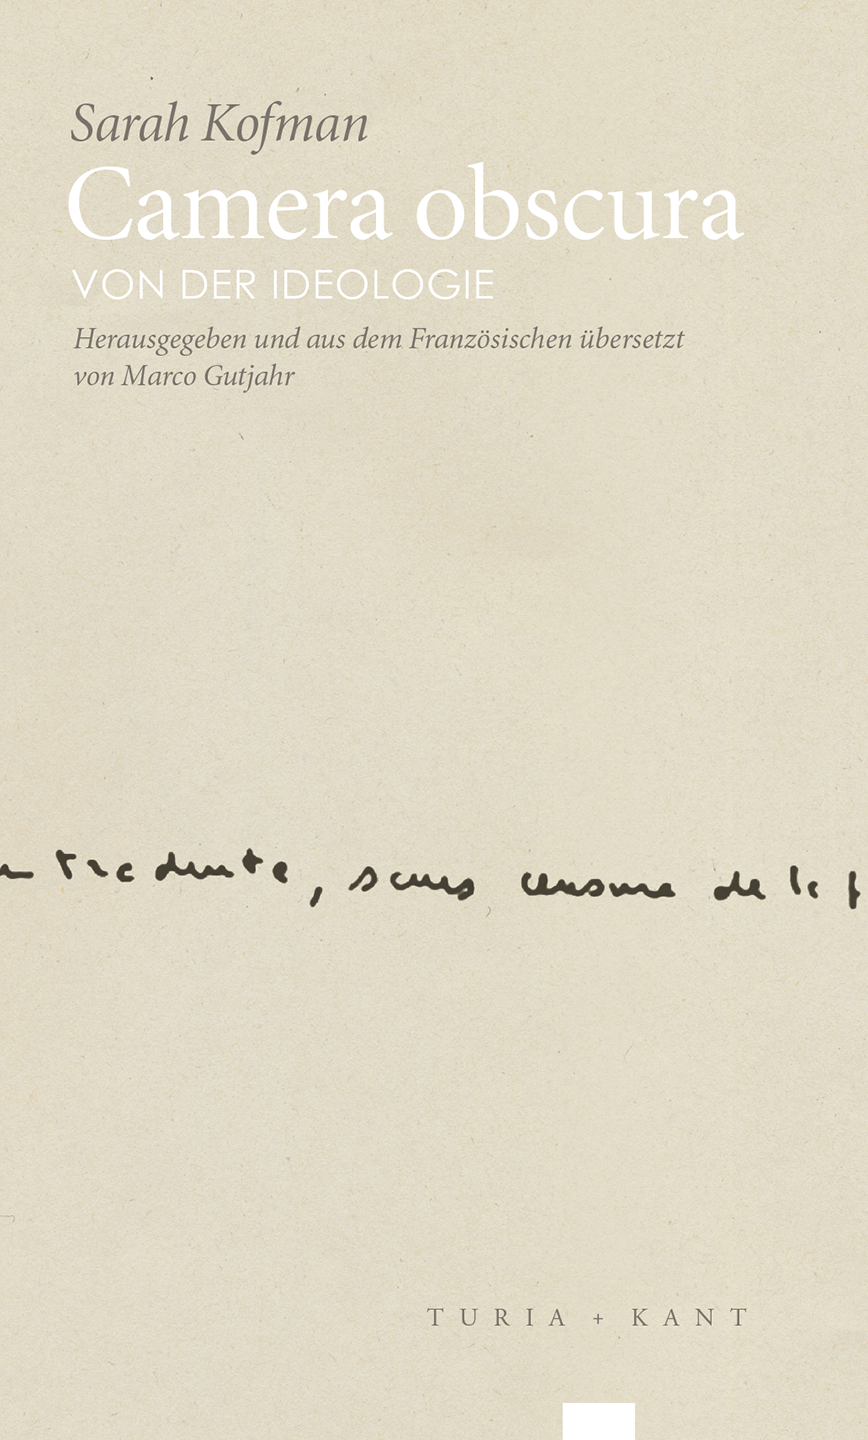 Sarah Kofman
Camera obscura
VON DER IDEOLOGIE
Herausgegeben und aus dem Französischen übersetzt
von Marco Gutjahr
, sans censure de la
TURIA + KANT